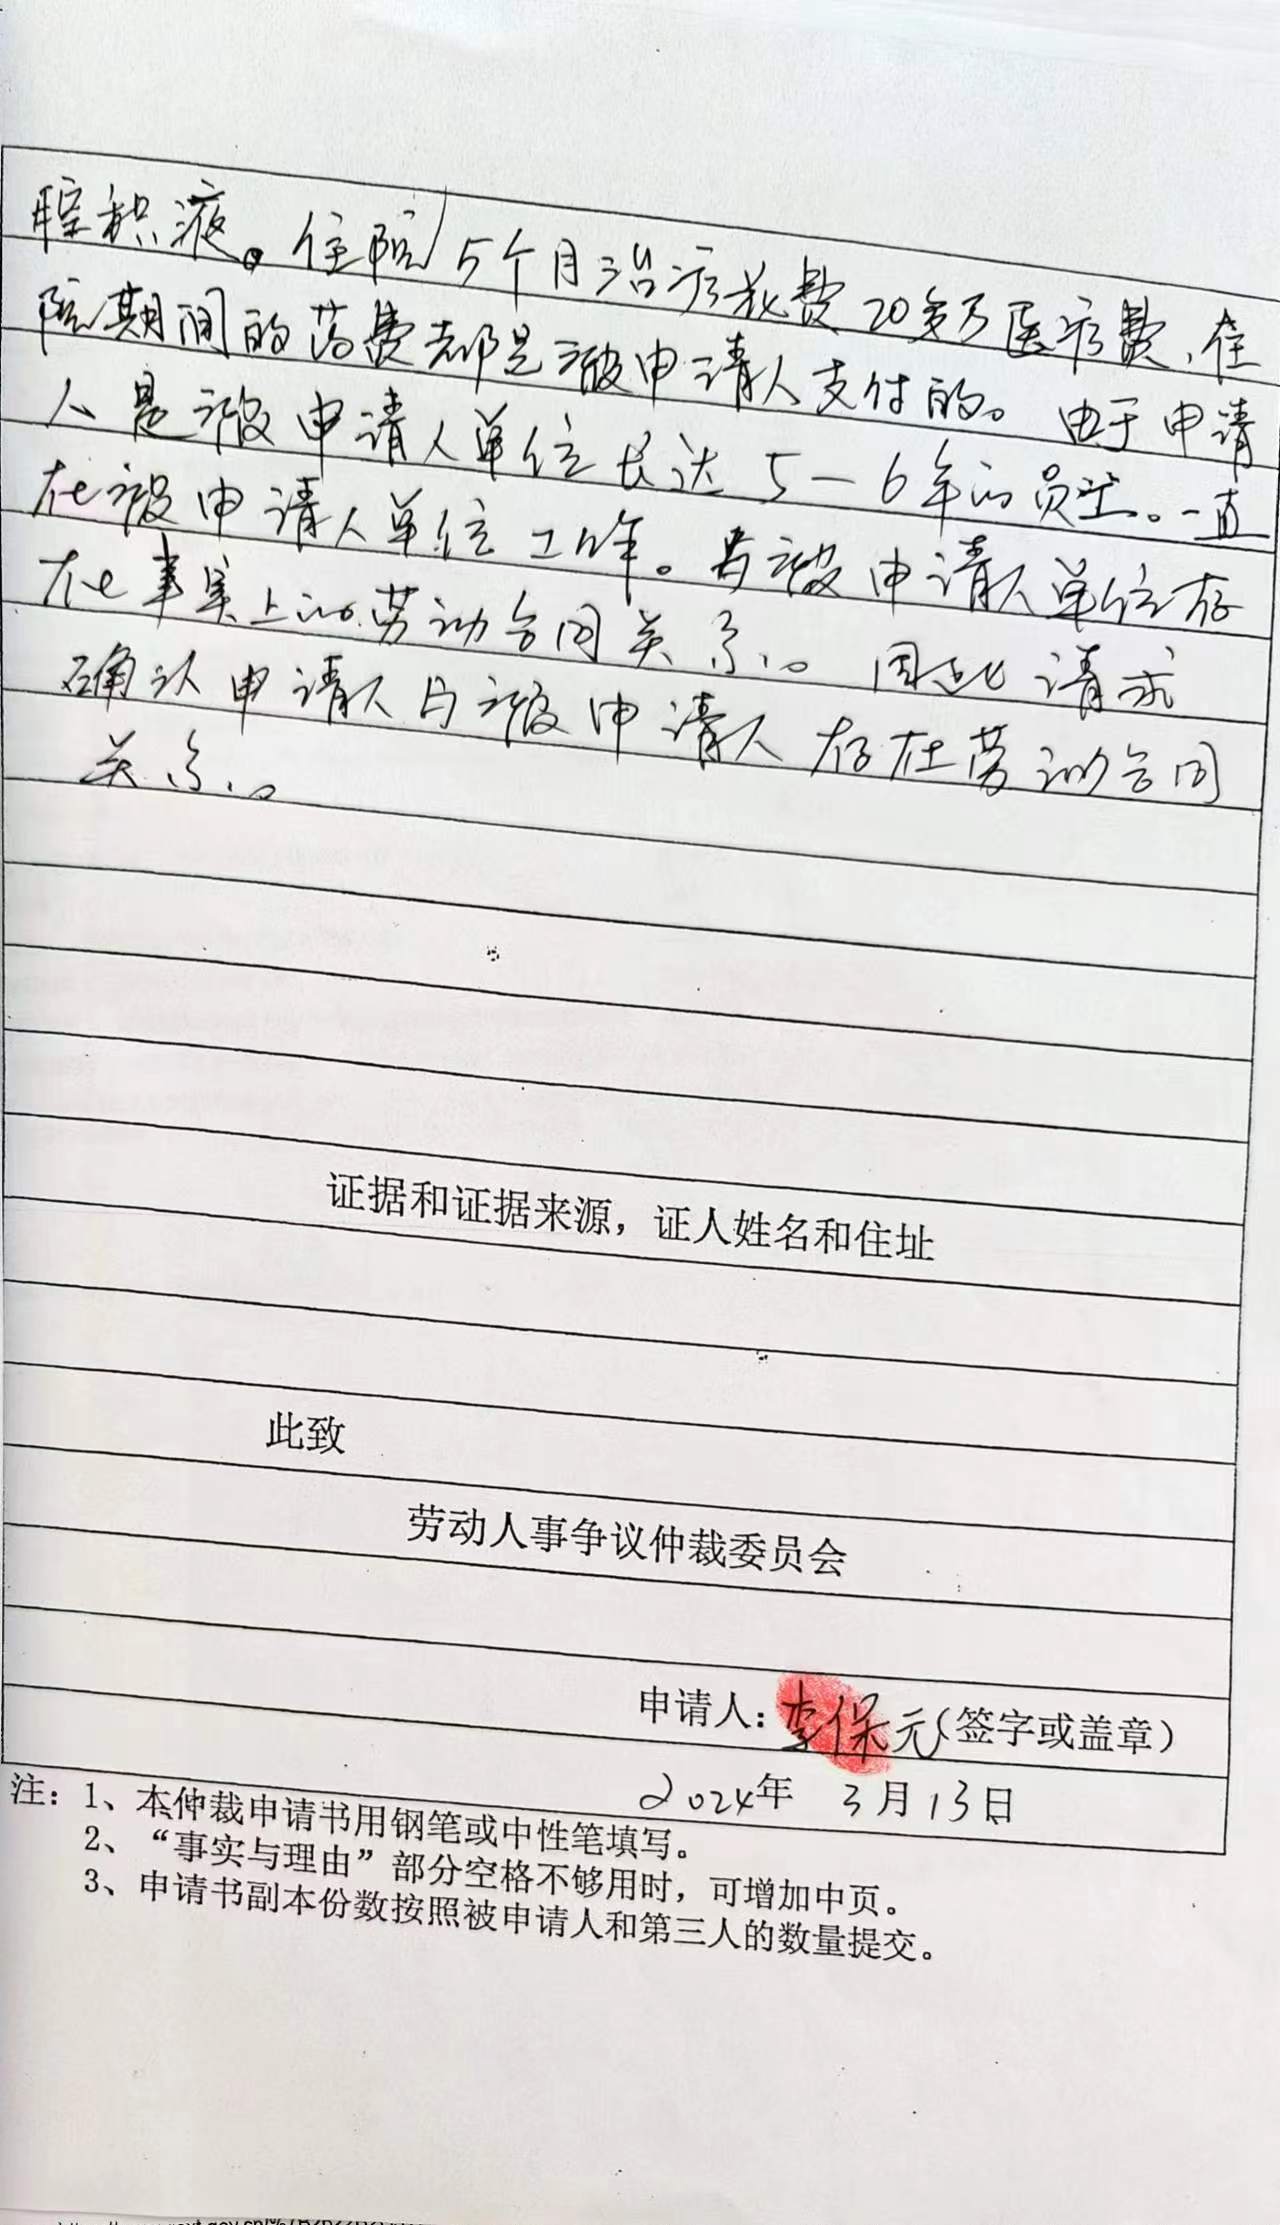 腔积液。住院5个月治疗花费20多万医疗费,住
院期间的药费都是被申请人支付的。由于申请
人是被申请人单位长达5-6年的员工。一直
在被申请人单位工作。与被申请人单位存
在事实上的劳动合同关系。因此请求
确认申请人与被申请人存在劳动合同
关系。
证据和证据来源，证人姓名和住址
此致
劳动人事争议仲裁委员会
申请人：李保元(签字或盖章）
2024年 3月13日
注：1、本仲裁申请书用钢笔或中性笔填写。
2、“事实与理由”部分空格不够用时，可增加中页。
3、申请书副本份数按照被申请人和第三人的数量提交。